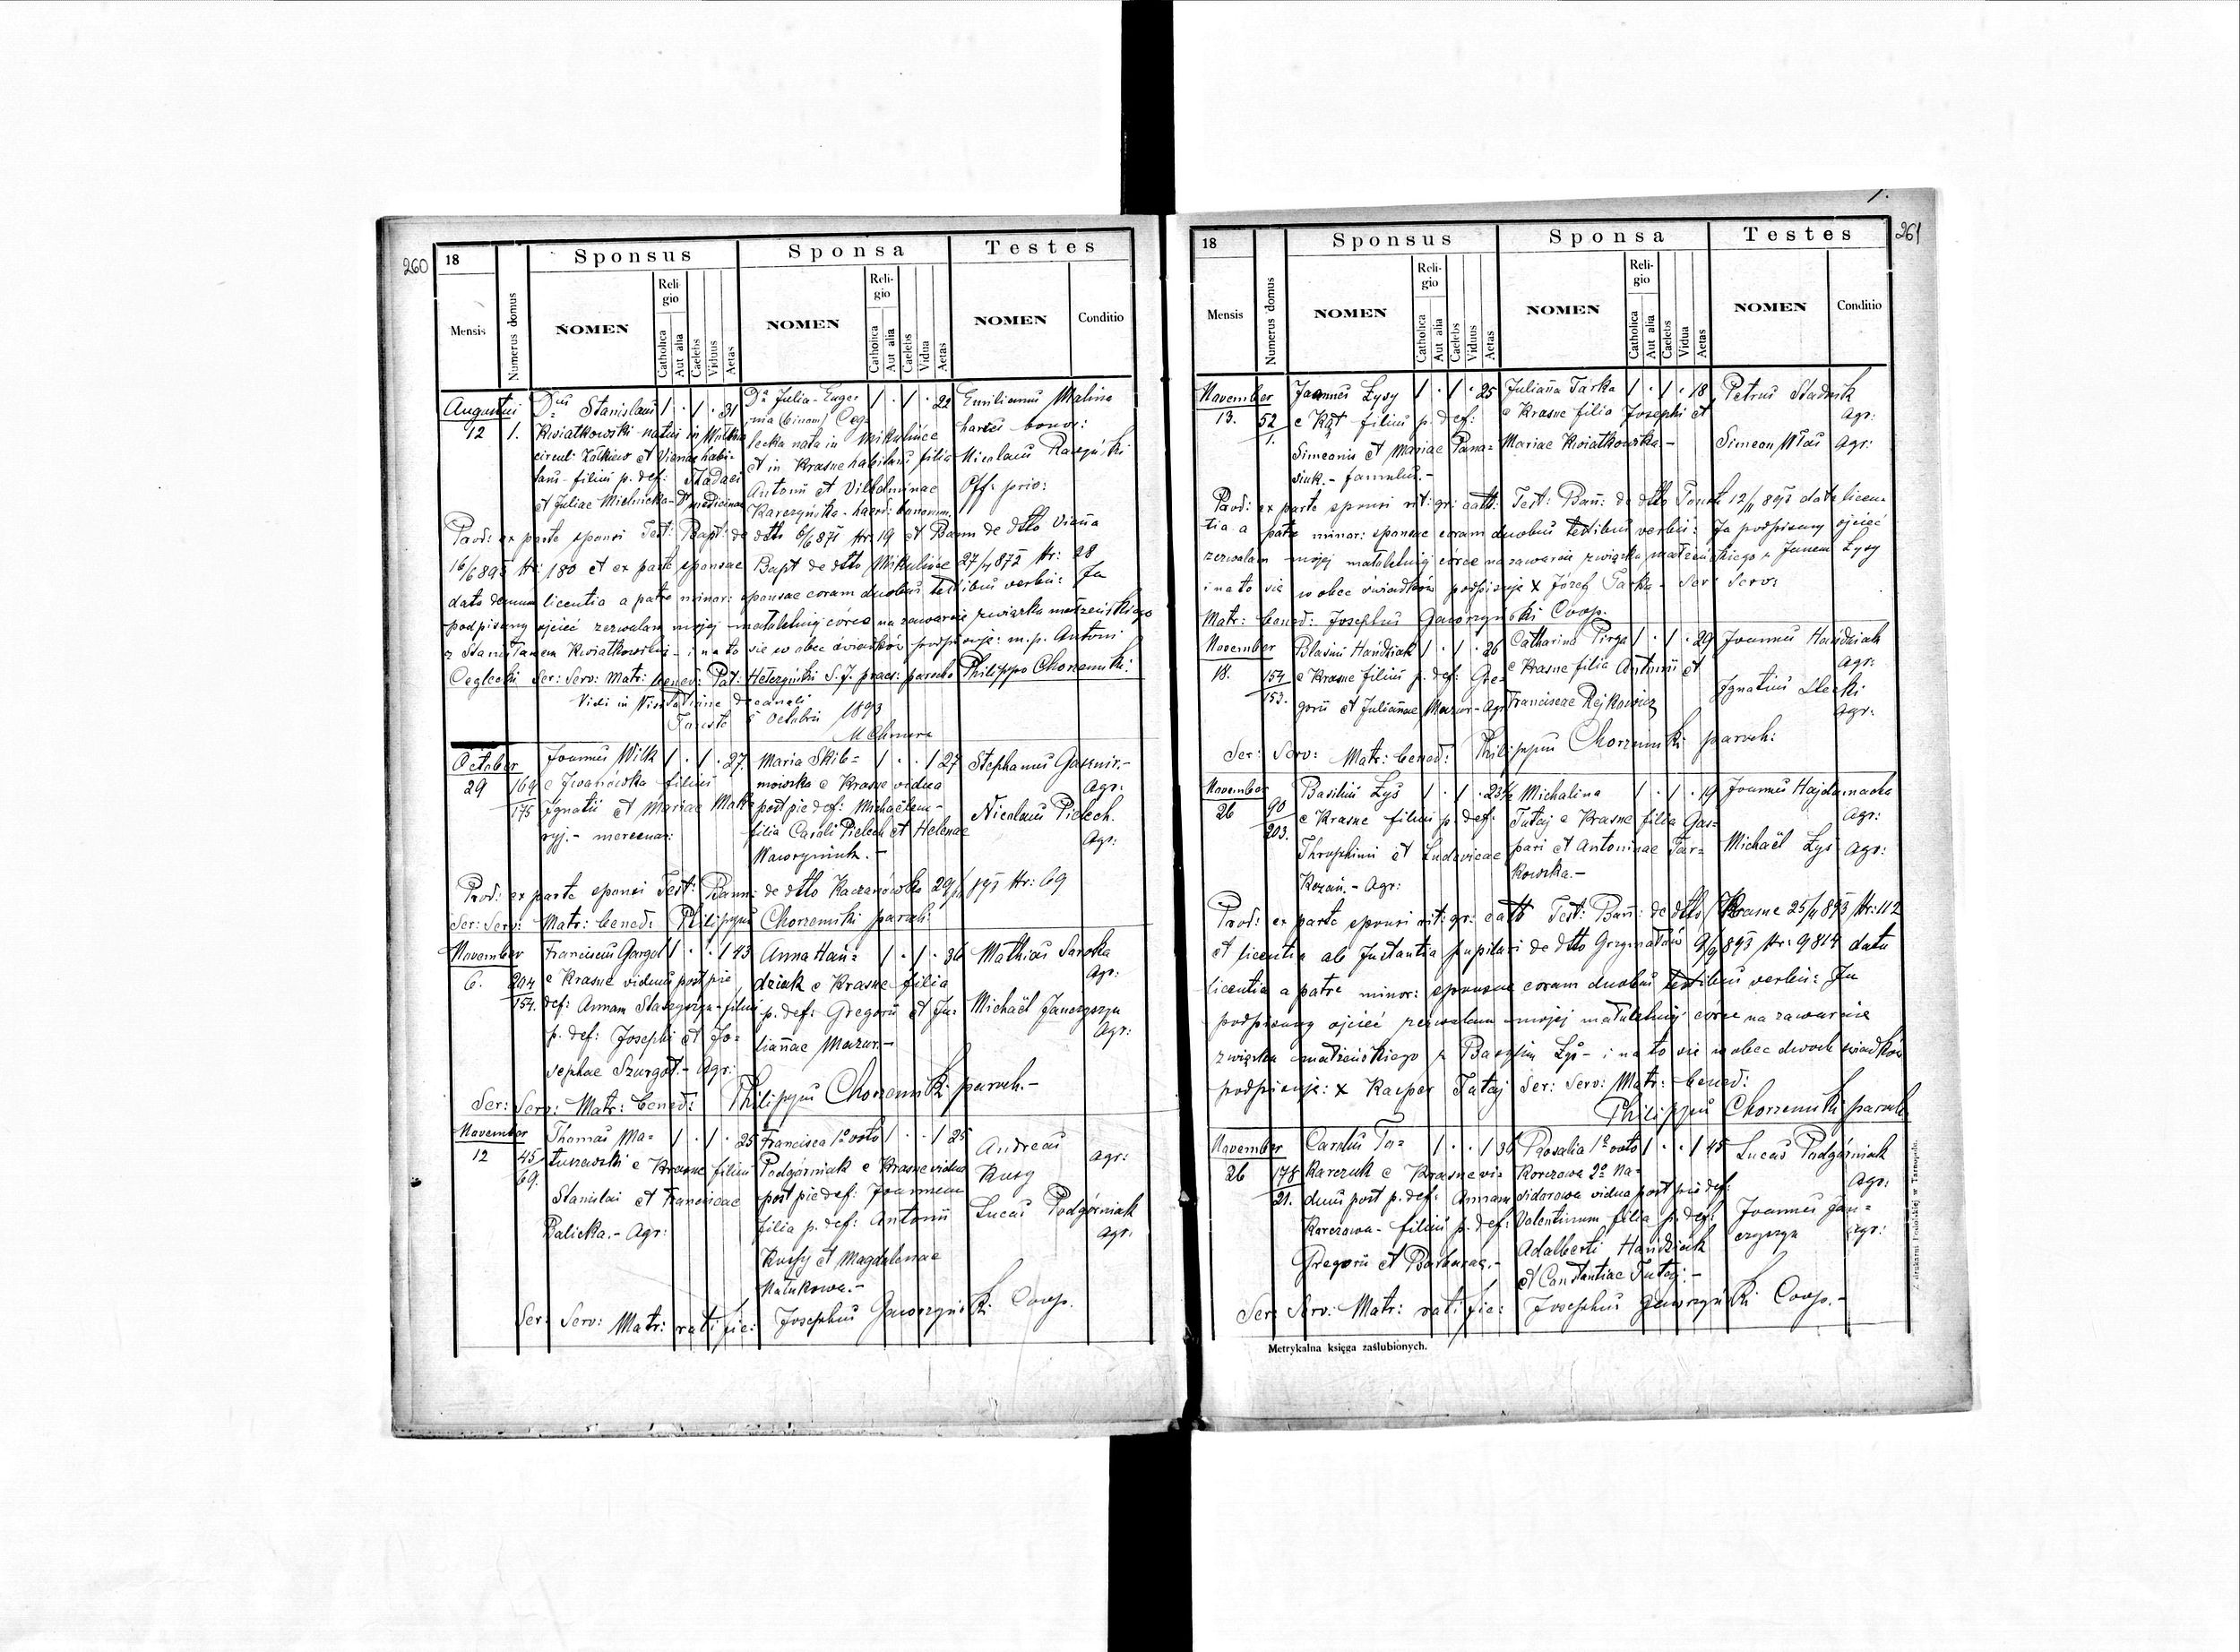 260
18
Sponsus
Sponsa
Testes
Mensis
Numerus domus
NOMEN
Reli-
gio
Catholica
Aut alia
Caelebs
Viduus
Aetas
NOMEN
Reli-
gio
Catholica
Aut alia
Caelebs
Vidua
Aetas
NOMEN
Conditio
Augusti 12 1.
Dnus Stanislaus 1 . 1 . 31
Kwiatkowski natus in
circuli Żółkiew et Viennae habi-
tans filius p. def: Thadaei
et Juliae Michnicka Dr medicinae
Dna Julia Euge- 1 . 1 . 22
nia (binom) Ceg-
lecka nata in Mikulińce
et in Krasne habitans filia
Antonii et Vilhelminae
Karczyńska - haered: bonorum.
Emilianus Malino
bonor:
Nicolaus
Off: priv:
Prod: ex parte sponsi Test: Bapt: de dtto 6/6 871 Nr: 19 et Bann de dtto Vienna
16/6 893 Nr: 180 et ex parte sponsae Bapt de dtto Mikulińce 27/4 872 Nr: 28
dato demum licentia a patre minor: sponsae coram duobus testibus verbis: Ja
podpisany ojciec zezwalam mojej małoletniej córce na zawarcie związku małżeńskiego
z Stanisławem Kwiatkowskim - i na to się w obec świadków podpisuję: m.p. Antoni
Ceglecki Ser: Serv: Matr: bened: Pat: S. J. praes: parocho Philippo Chorzemski:
Vidi in Visitatione decanali
5 Octobris 1893
October 29 169 175
Joannes Wilk 1 . 1 . 27.
e Iwanówka filius
Ignatii et Mariae
ryj. - mercenar:
Maria Skib- 1 . . 1 27
niowska e Krasne vidua
post pie def: Michaëlem -
filia Caroli Pielech et Helenae
Wawryniuk. -
Stephanus
Agr:
Nicolaus Pielech.
Agr:
Prod: ex parte sponsi Test: Bann: de dtto Kaczanówka Nr: 69
Ser: Serv: Matr: bened: Philippus Chorzemski paroch:
November 6. 294 154.
Franciscus Gargol 1 . . 1 43
e Krasne viduus post pie
def: Annam - filius
p. def: Josephi et Jo-
sephae Szurgot. - Agr:
Anna Hań- 1 . 1 . 36
dziak e Krasne filia
p. def: Gregorii et Ju-
liannae Mazur. -
Mathias Saroka
Agr:
Michaël Janczyszyn
Agr:
Ser: Serv: Matr: bened: Philippus Chorzemski paroch. -
November 12 45 69.
Thomas Ma- 1 . 1 . 25
tuszewski e Krasne filius
Stanislai et Franciscae
Balicka. - Agr:
Francisca 1o voto 1 . . 1 25
Podgórniak e Krasne vidua
post pie def: Joannem
filia p. def: Antonii
et Magdalenae
Andreas
Agr:
Lucas Podgórniak
Agr:
Ser: Serv: Matr: ratific: Josephus Gaworzyński Coop.
261
18
Sponsus
Sponsa
Testes
Mensis
Numerus domus
NOMEN
Reli-
gio
Catholica
Aut alia
Caelebs
Viduus
Aetas
NOMEN
Reli-
gio
Catholica
Aut alia
Caelebs
Vidua
Aetas
NOMEN
Conditio
November 13. 52 1.
Joannes Łysy 1 . 1 . 25
e Kąt filius p. def:
Simeonis et Mariae Pana-
siuk. - famulus. -
Julianna Tarka 1 . 1 . 18
e Krasne filia Josephi et
Mariae Kwiatkowska -
Petrus Stadnik
Agr:
Simeon Agr:
Prod: ex parte sponsi rit: gr: cath: Test: Bann: de dtto 12/11 893 data licen-
tia a patre minor: sponsae coram duobus testibus verbis: Ja podpisany ojciec
zezwalam mojej małoletniej córce na zawarcie związku małżeńskiego z Janem Łysy
i na to się w obec świadków podpisuję x Józef Tarka - Ser: Serv:
Matr: bened: Josephus Gaworzyński Coop.
November 18. 154 153.
Blasius Hańdziak 1 . 1 . 26
e Krasne filius p. def: Gre-
gorii et Juliannae Mazur - Agr
Catharina Pirga 1 . 1 . 29
e Krasne filia Antonii et
Franciscae Rejkowicz
Joannes Hańdziak
Agr:
Ignatius
Agr:
Ser: Serv: Matr: bened: Philippus Chorzemski paroch:
November 26 90 203.
Basilius Łyś 1 . 1 . 23½
e Krasne filius p. def:
et Ludovicae
Kozań. - Agr:
Michalina 1 . 1 . 19
Tutaj e Krasne filia Gas-
pari et Antoninae Tar-
kowska. -
Joannes Hajdamacha
Agr:
Michaël Łyś Agr:
Prod: ex parte sponsi rit: gr: cath Test: Bann: de dtto Krasne 25/11 893 Nr: 112
et licentia ab Instantia pupilari de dtto Grzymałów 9/9 893 Nr: 9814 data
licentia a patre minor: sponsae coram duobus testibus verbis: Ja
podpisany ojciec zezwalam mojej małoletniej córce na zawarcie
związku małżeńskiego z Bazylim Łyś - i na to się w obec dwoch świadków
podpisuję: x Kacper Tutaj Ser: Serv: Matr: bened:
Philippus Chorzemski paroch
November 26 178 21.
Carolus To- 1 . . 1 36
karczuk e Krasne vi-
duus post p. def: Annam
Korczowa - filius p. def:
Gregorii et Barbarae. -
Rosalia 1o voto 1 . . 1 45
Korczowa 2o Na-
sidorowa vidua post pie def:
Valentinum filia p. def:
Adalberti Hańdziak
et Constantiae Tutaj. -
Lucas Podgórniak
Agr:
Joannes Jan-
czyszyn Agr:
Ser: Serv: Matr: ratific: Josephus Gaworzyński Coop. -
Metrykalna księga zaślubionych.
Z drukarni Podolskiej w Tarnopolu.